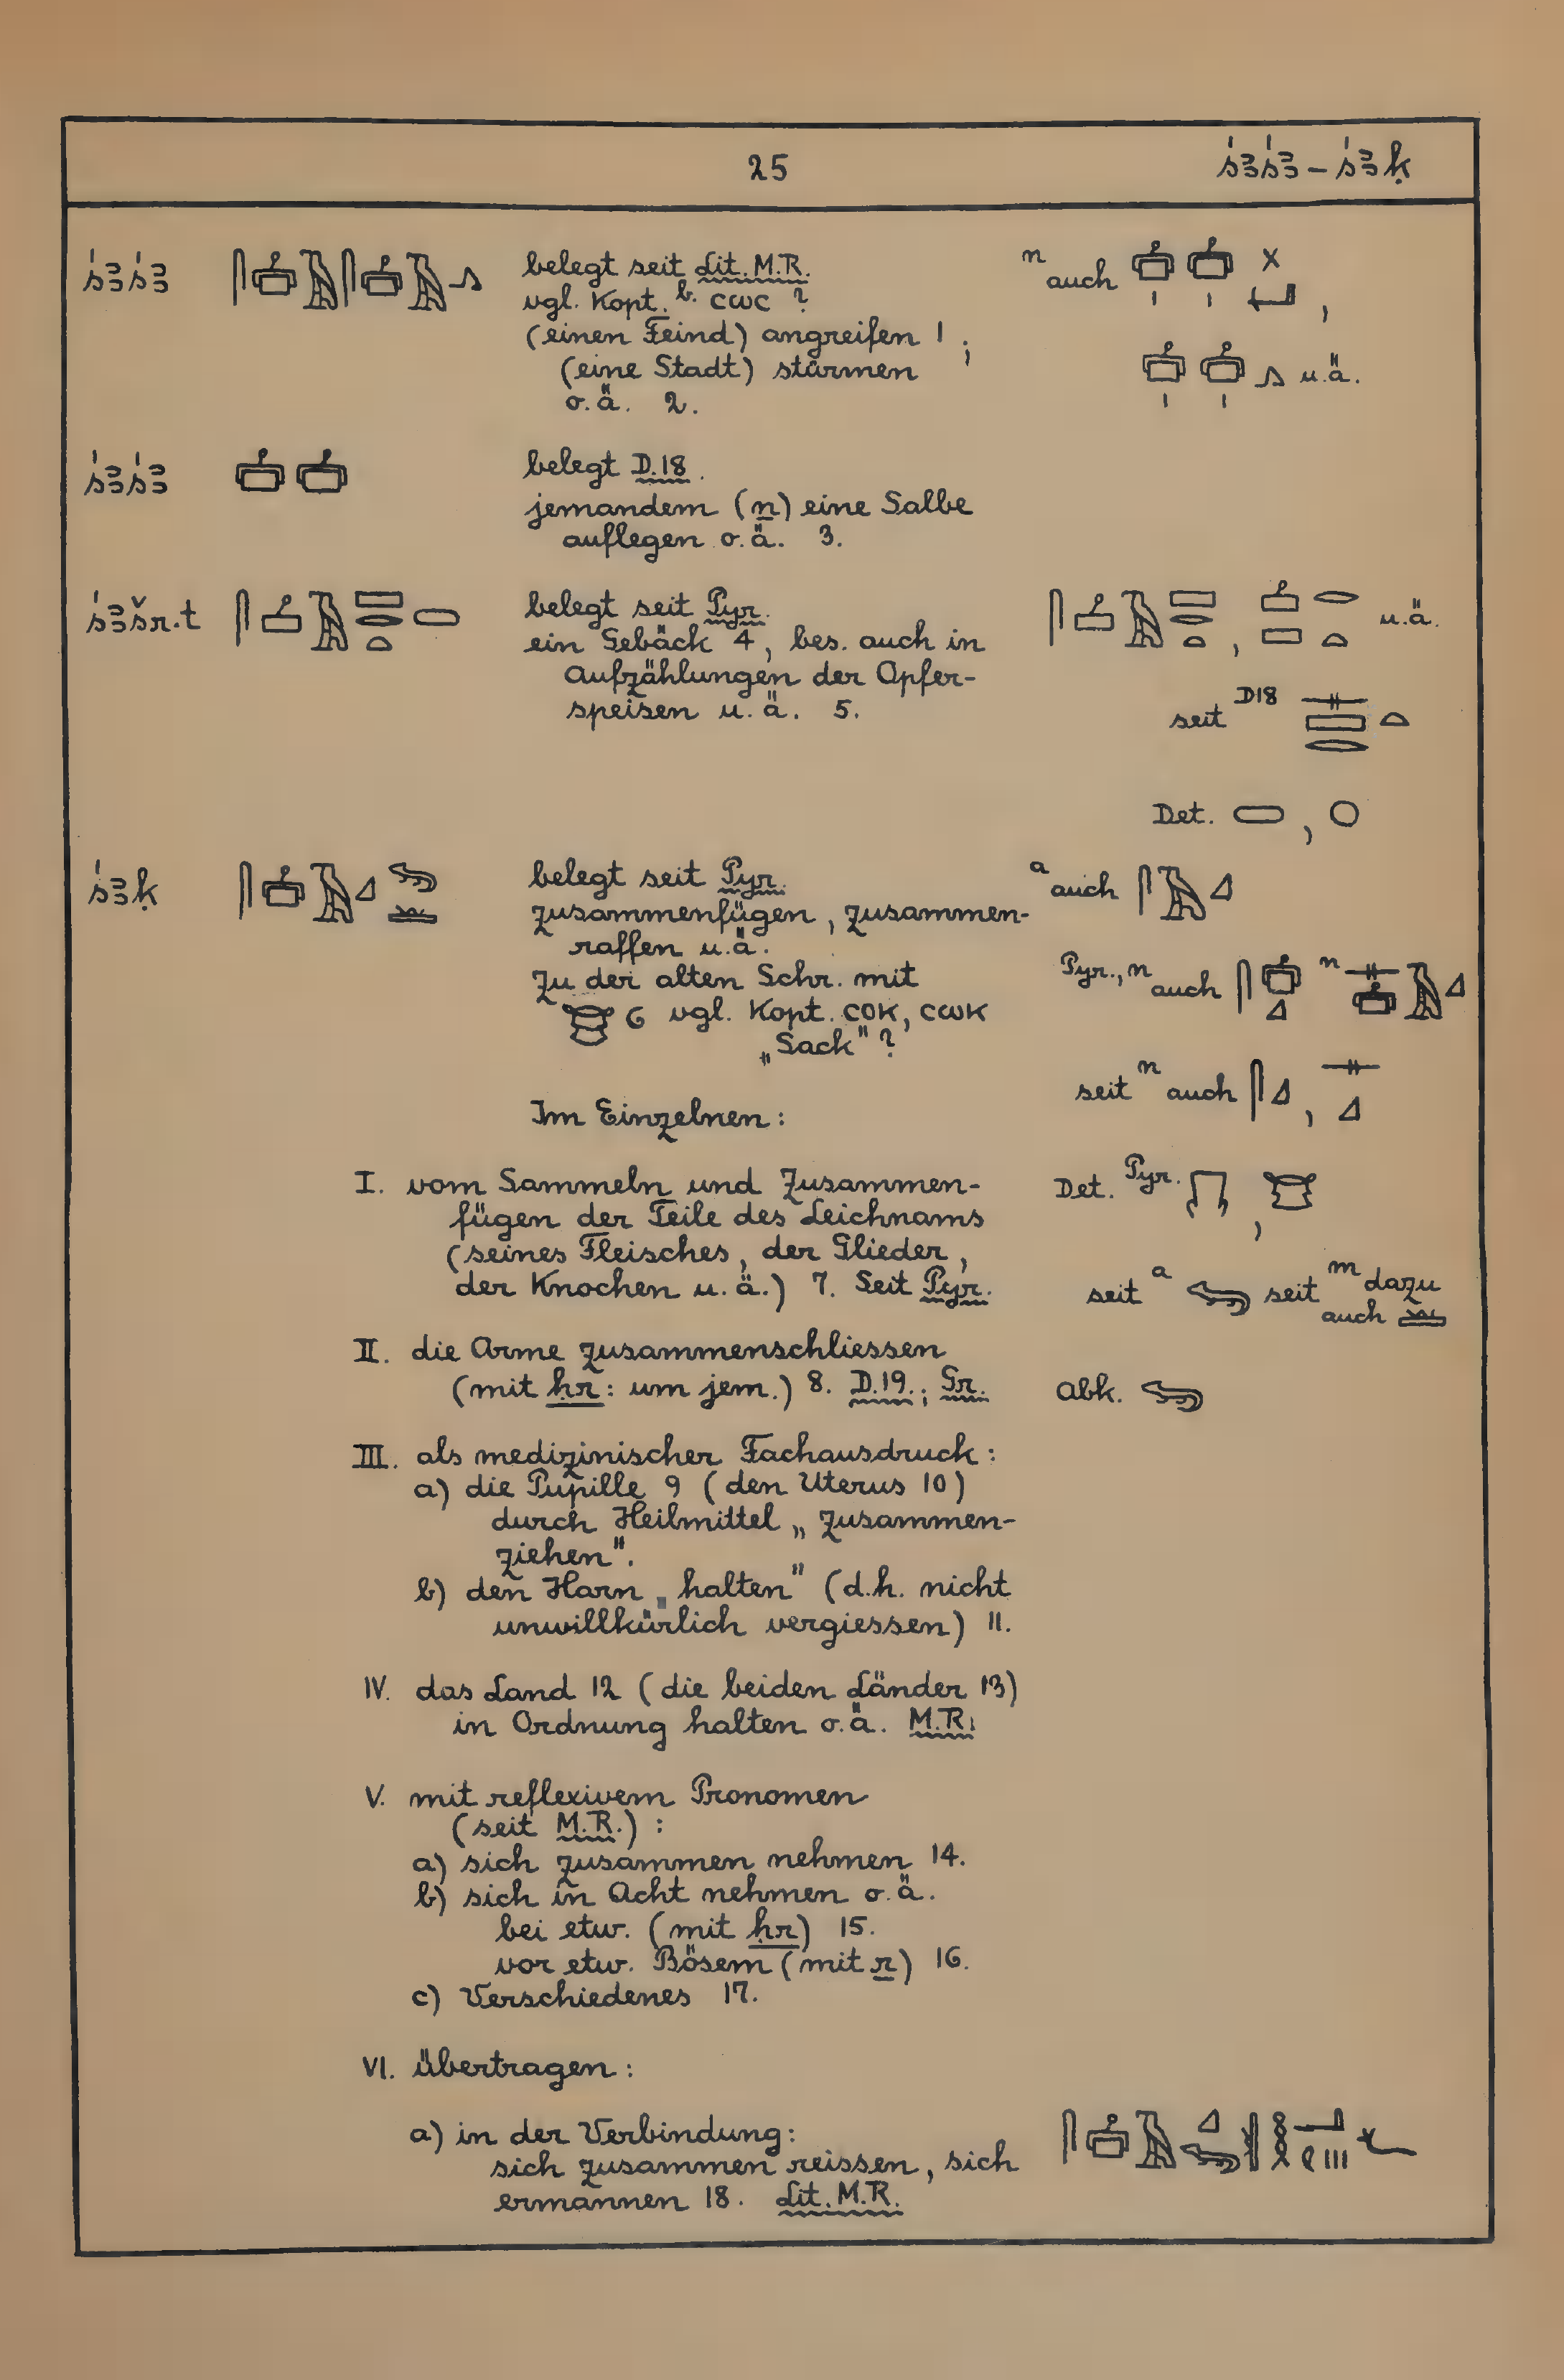 25 śꜣśꜣ – śꜣ ḳ
śꜣśꜣ belegt seit Lit. M.R.
vgl. Kopt. b. ⲥⲱⲥ ?
(einen Feind) angreifen 1 ;
(eine Stadt) stürmen
o. ä. 2.
n auch
u. ä.
śꜣśꜣ belegt D. 18.
jemandem (n) eine Salbe
auflegen o. ä. 3.
śꜣšr.t belegt seit Pyr.
ein Gebäck 4, bes. auch in
Aufzählungen der Opfer-
speisen u. ä. 5.
u. ä.
seit D18
Det.
śꜣḳ belegt seit Pyr.
zusammenfügen, zusammen-
raffen u. ä.
Zu der alten Schr. mit
6 vgl. Kopt. ⲥⲟⲕ, ⲥⲱⲕ
„Sack" ?
a auch
Pyr., n auch n
seit n auch
Im Einzelnen:
I. vom Sammeln und Zusammen-
fügen der Teile des Leichnams
(seines Fleisches, der Glieder,
der Knochen u. ä.) 7. Seit Pyr.
Det. Pyr.
seit a seit m dazu
auch
II. die Arme zusammenschliessen
(mit ḥr: um jem.) 8. D. 19.; Gr.
Abk.
III. als medizinischer Fachausdruck:
a) die Pupille 9 (den Uterus 10)
durch Heilmittel „zusammen-
ziehen".
b) den Harn „halten" (d. h. nicht
unwillkürlich vergiessen) 11.
IV. das Land 12 (die beiden Länder 13)
in Ordnung halten o. ä. M.R.
V. mit reflexivem Pronomen
(seit M.R.) :
a) sich zusammen nehmen 14.
b) sich in Acht nehmen o. ä.
bei etw. (mit ḥr) 15.
vor etw. Bösem (mit r) 16.
c) Verschiedenes 17.
VI. übertragen:
a) in der Verbindung:
sich zusammen reissen, sich
ermannen 18. Lit. M.R.